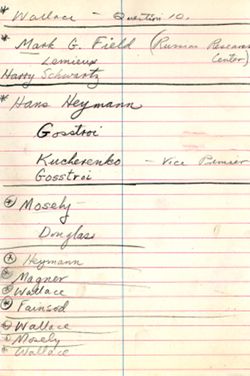 * Wallace - Question 10.
* Mark G. Field (Russian Research Center)
Lemieux
Harry Schwartz
* Hans Heymann
Gosstroi
Kucherenko - Vice Premier
Gosstroi
* Mosely
Douglas
* Heymann
* Magner
* Wallace
* Fainsod
* Wallace
* Mosely
* Wallace